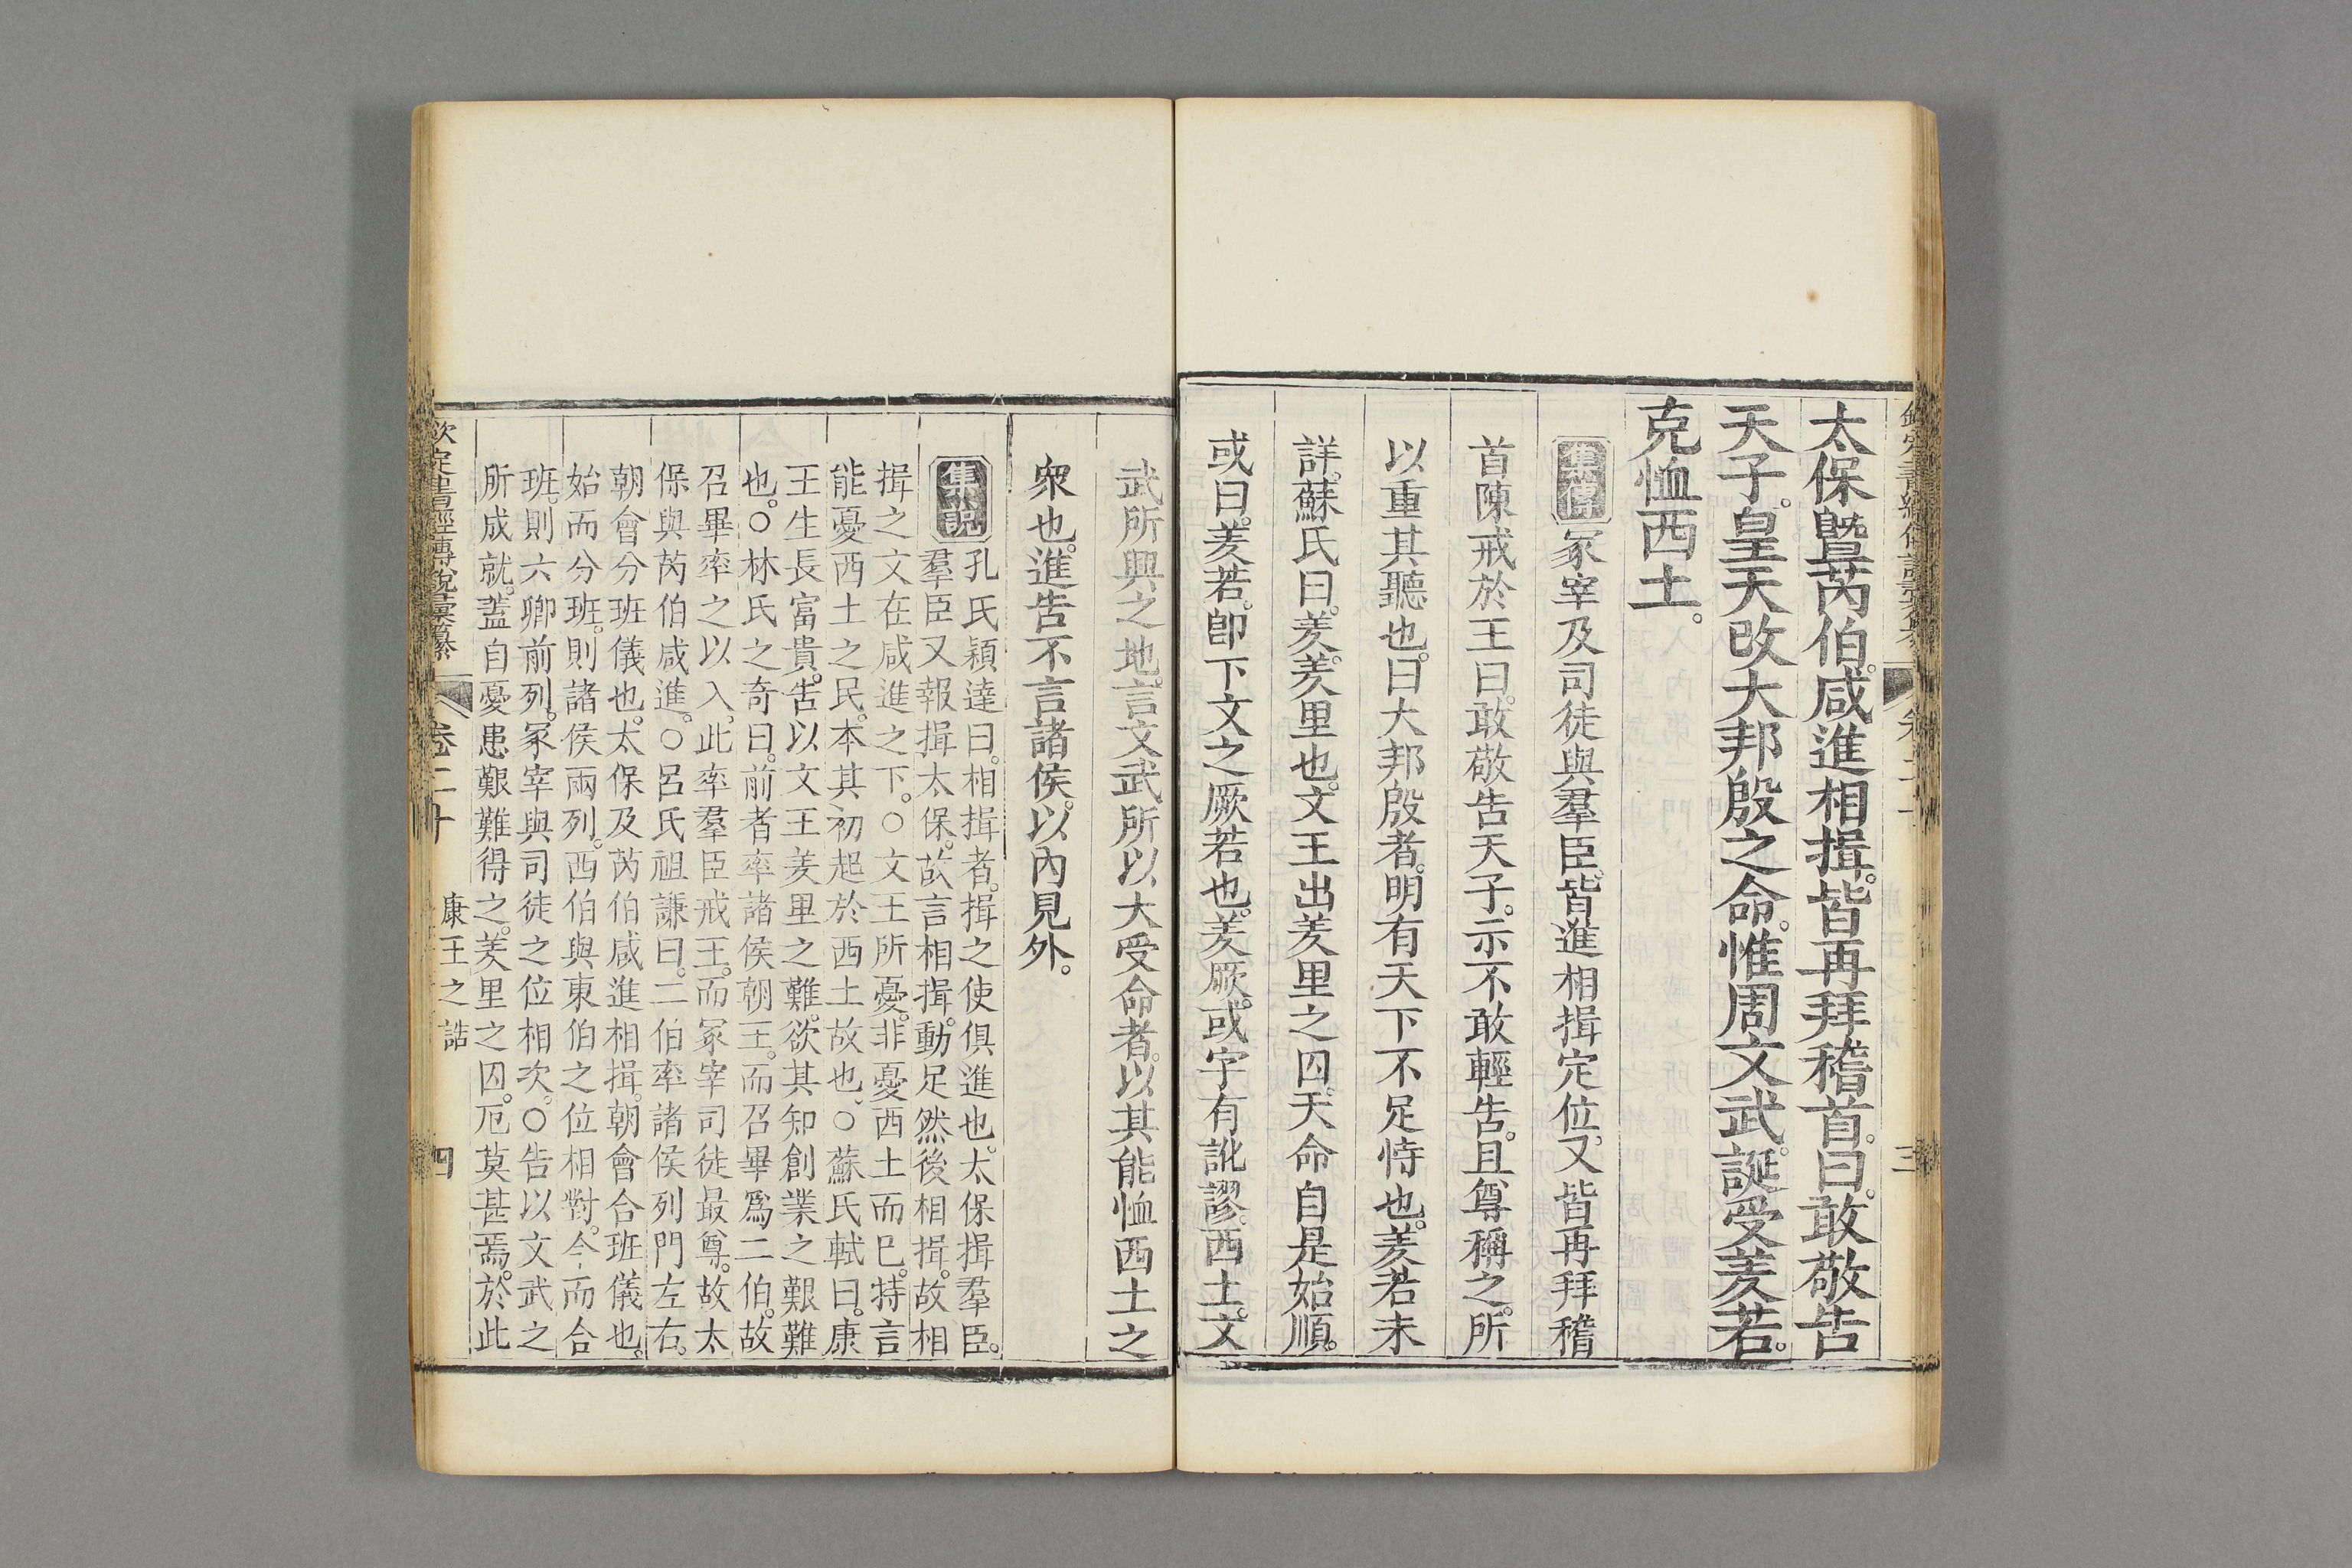 太保暨芮伯。咸進相揖。皆再拜稽首。曰。敢敬告
天子。皇天改大邦殷之命。惟周文武。誕受羑若。
克恤西土。
集傳 冢宰及司徒與羣臣。皆進相揖定位。又皆再拜稽
首陳戒於王曰。敢敬告天子。示不敢輕告。且尊稱之。所
以重其聽也。曰大邦殷者。明有天下不足恃也。羑若未
詳。蘇氏曰。羑。羑里也。文王出羑里之囚。天命自是始順。
或曰。羑若。卽下文之厥若也。羑厥。或字有訛謬。西土。文
武所興之地。言文武所以大受命者。以其能恤西土之
衆也。進告不言諸侯。以內見外。
集說 孔氏穎達曰。相揖者。揖之使俱進也。太保揖羣臣。
羣臣又報揖太保。故言相揖。動足然後相揖。故相
揖之文在咸進之下。○文王所憂。非憂西土而已。特言
能憂西土之民。本其初起於西土故也。○蘇氏軾曰。康
王生長富貴。告以文王羑里之難。欲其知創業之艱難
也。○林氏之奇曰。前者率諸侯朝王。而召畢爲二伯。故
召畢率之以入。此率羣臣戒王。而冢宰司徒最尊。故太
保與芮伯咸進。○呂氏祖謙曰。二伯率諸侯列門左右。
朝會分班儀也。太保及芮伯咸進相揖。朝會合班儀也。
始而分班。則諸侯兩列。西伯與東伯之位相對。今而合
班。則六卿前列。冢宰與司徒之位相次。○告以文武之
所成就。蓋自憂患艱難得之。羑里之囚。厄莫甚焉。於此
欽定書經傳說彙纂 卷二十 康王之誥 四